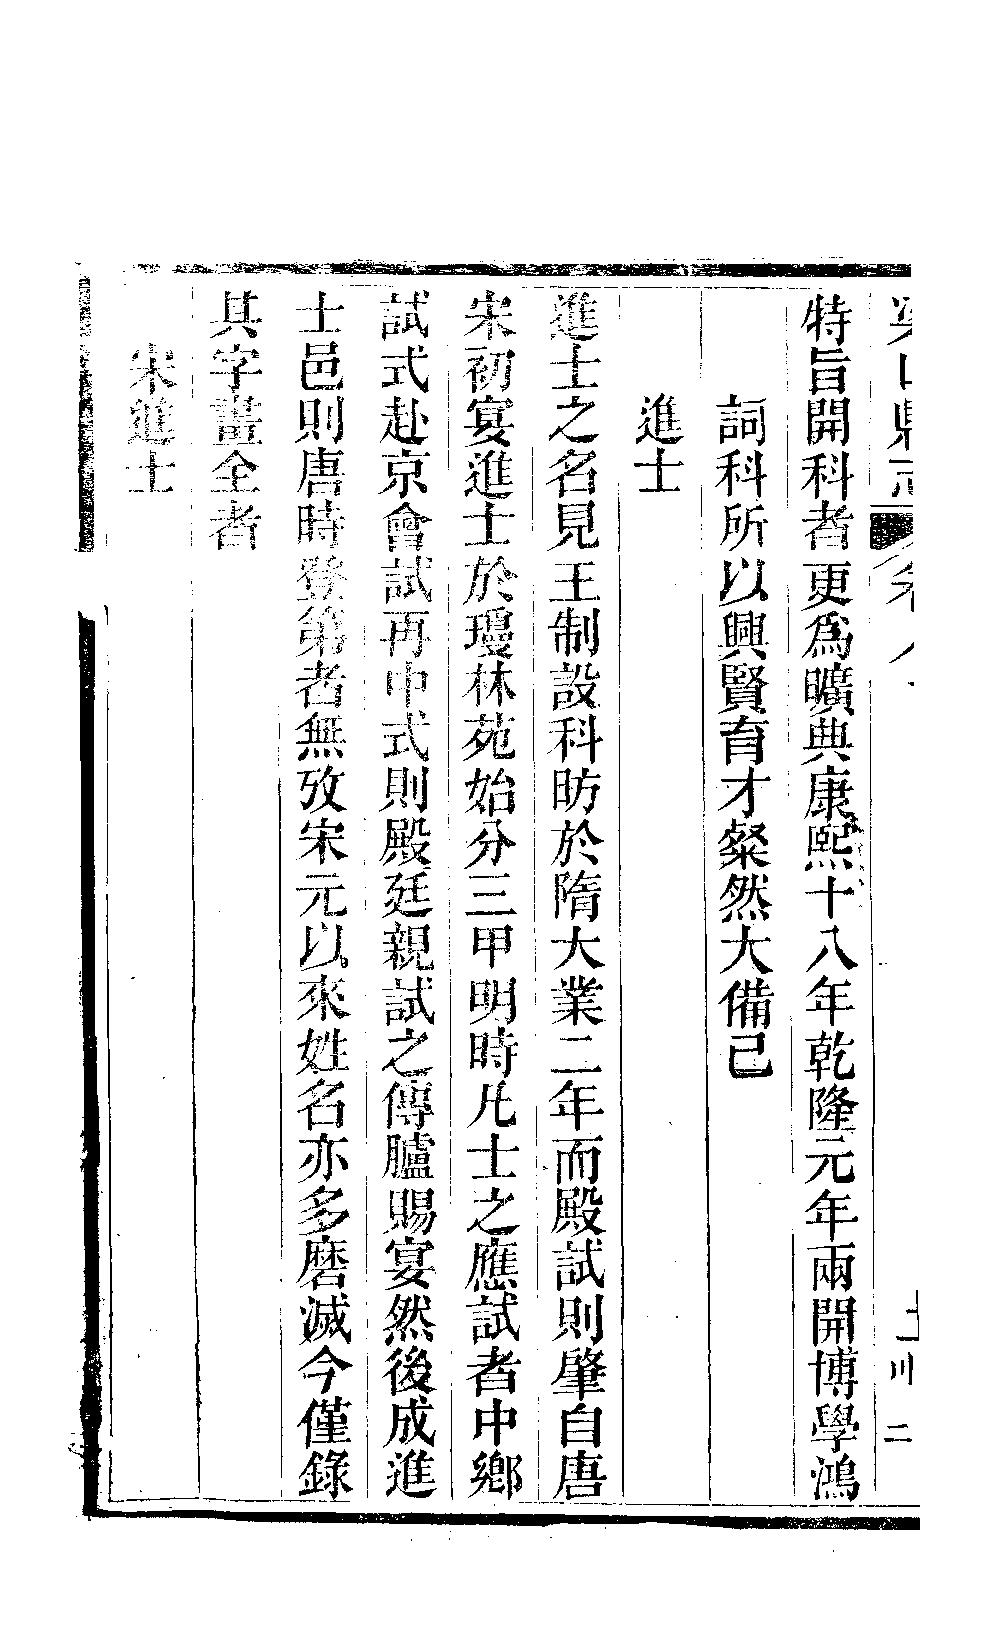 特旨開科者更爲曠典康熙十八年乾隆元年兩開博學鴻
詞科所以興賢育才粲然大備已
進士
進士之名見王制設科昉於隋大業二年而殿試則肇自唐
宋初宴進士於瓊林苑始分三甲明時凡士之應試者中鄉
試式赴京會試再中式則殿廷親試之傳臚賜宴然後成進
士邑則唐時登第者無攷宋元以來姓名亦多磨滅今僅錄
其字畫全者
宋進士